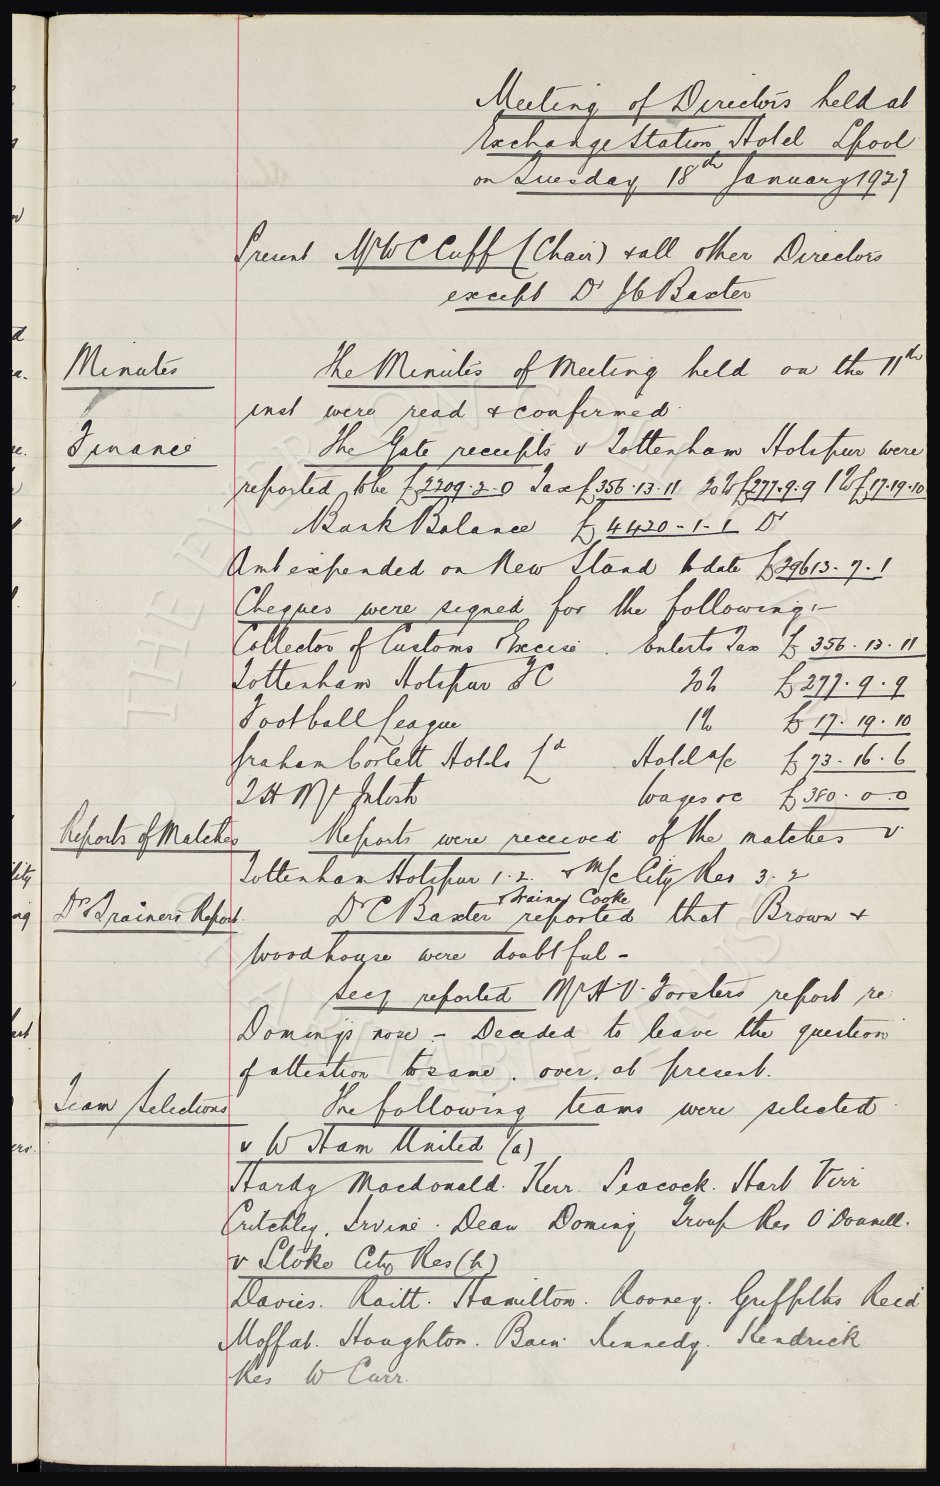 Meeting of Directors held at
Exchange Station Hotel Lpool
on Tuesday 18th January 1927
Present Mr W C Cuff (Chair) & all other Directors
except Dr J C Baxter
Minutes The Minutes of Meeting held on the 11th
inst were read & confirmed
Finance The Gate receipts v Tottenham Hotspur were
reported to be £2209-2-0 Tax £356-13-11 20% £277-9-9 1% £17-19-10
Bank Balance £4420-1-1 Dr
Amt expended on New Stand to date £29613-7-1
Cheques were signed for the following:-
Collector of Customs & Excise. Enterts Tax £356-13-11
Tottenham Hotspur FC 20% £277-9-9
Football League 1% £17-19-10
Graham Corlett Holds Ld Hold a/c £73-16-6
T H McIntosh Wages &c £380-0-0
Reports of Matches Reports were received of the matches v
Tottenham Hotspur 1-2. & M/c City Res 3-2
Dr & Trainers Report. Dr C Baxter & Trainer Cooke reported that Brown &
Woodhouse were doubtful -
Secy reported Mr H V Forsters report re
Dominy's nose - Decided to leave the question
of attention to same, over, at present.
Team Selections The following teams were selected
v W Ham United (a)
Hardy Macdonald. Kerr. Peacock. Hart Virr
Critchley, Irvine. Dean Dominy Troup Res O'Donnell.
v Stoke City Res (h)
Davies. Raitt. Hamilton. Rooney. Griffiths Reid
Moffat. Houghton. Bain. Kennedy. Kendrick
Res W Curr.
THE EVERTON COLLECTION
CHARITABLE TRUST